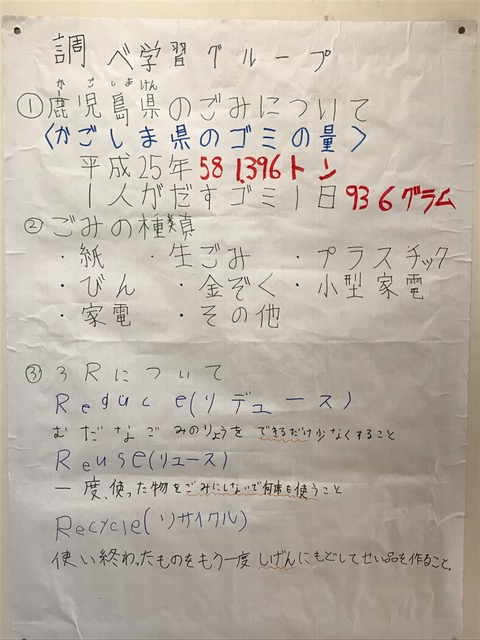 調べ学習グループ
かごしまけん
①鹿児島県のごみについて
〈かごしま県のゴミの量〉
平成25年581,396トン
1人がだすゴミ1日936グラム
②ごみの種類
・紙 ・生ごみ ・プラスチック
・びん ・金ぞく ・小型家電
・家電 ・その他
③3Rについて
Reduce(リデュース)
むだなごみのりょうをできるだけ少なくすること
Reuse(リユース)
一度、使った物をごみにしないで何度も使うこと
Recycle(リサイクル)
使い終わったものをもう一度しげんにもどしてせい品を作ること。